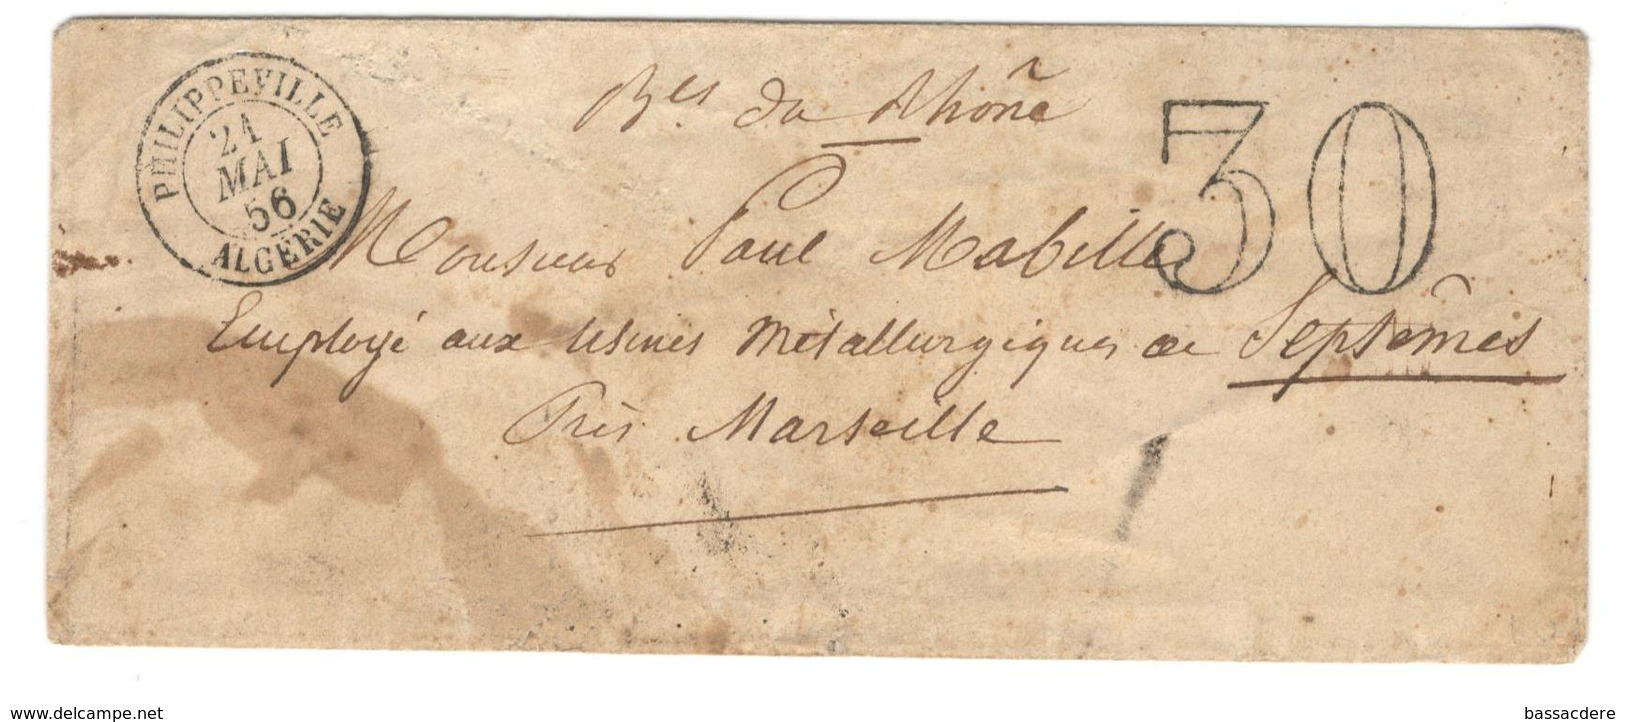 PHILIPPEVILLE
21
MAI
56
ALGÉRIE
Bes du Rhône
30
Monsieur Paul Mabille
Employé aux Usines Métallurgiques de Septèmes
Près Marseille
www.delcampe.net
bassacdere